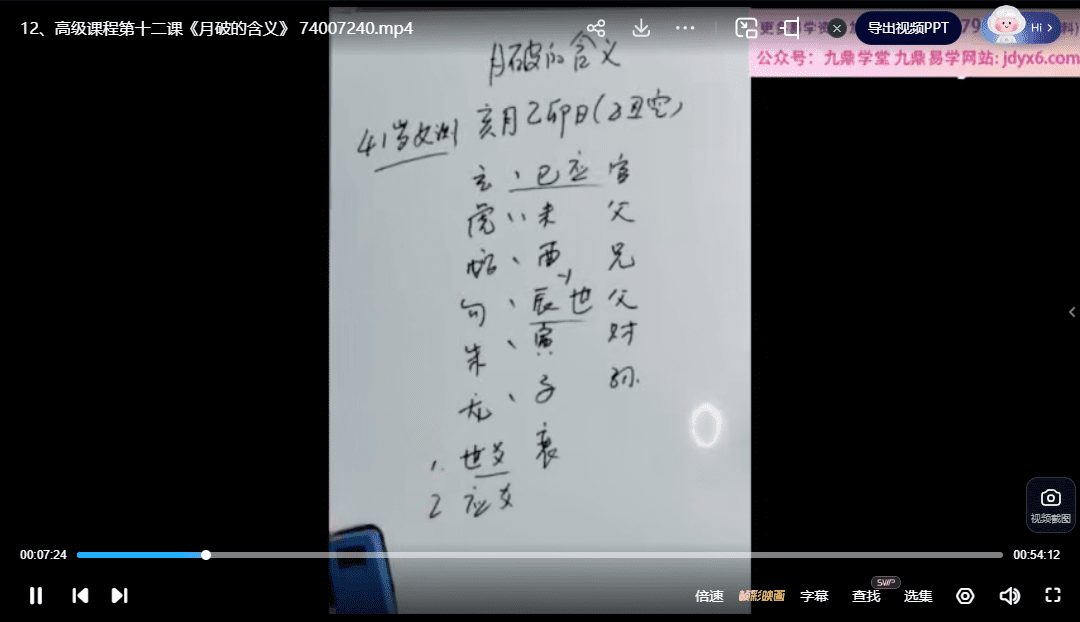 12、高级课程第十二课《月破的含义》 74007240.mp4
导出视频PPT
Hi
公众号：九鼎学堂 九鼎易学网站: jdyx6.com
月破的含义
41岁女测 亥月乙卯日(子丑空)
玄 、 巳应 官
虎 、、 未 父
蛇 、 酉 兄
勾 、 辰世 父
朱 、 寅 财
龙 、 子 孙.
1. 世爻 衰
2 应爻
视频截图
00:07:24 00:54:12
倍速 臻彩映画 字幕 查找 SVIP 选集